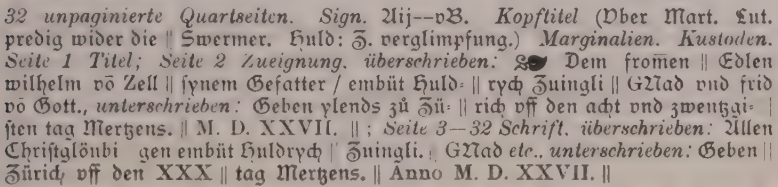 32 unpaginierte Quartseiten. Sign. Aij--vB. Kopftitel (Vber Mart. Lut.
predig wider die || Swermer. Huld: Z. verglimpfung.) Marginalien. Kustoden.
Seite 1 Titel; Seite 2 Zueignung. überschrieben: Dem from̄en || Edlen
wilhelm vō Zell || synem Gefatter / embüt Huld= || rych Zuingli || GNad vnd frid
vō Gott., unterschrieben: Geben ylends zů Zü= || rich vff den acht vnd zwentzgi= |
sten tag Mertzens. || M. D. XXVII. || ; Seite 3—32 Schrift. überschrieben: Allen
Christglöubi gen embüt Huldrych | Zuingli. | GNad etc., unterschrieben: Geben ||
Zürich vff den XXX || tag Mertzens. || Anno M. D. XXVII. ||